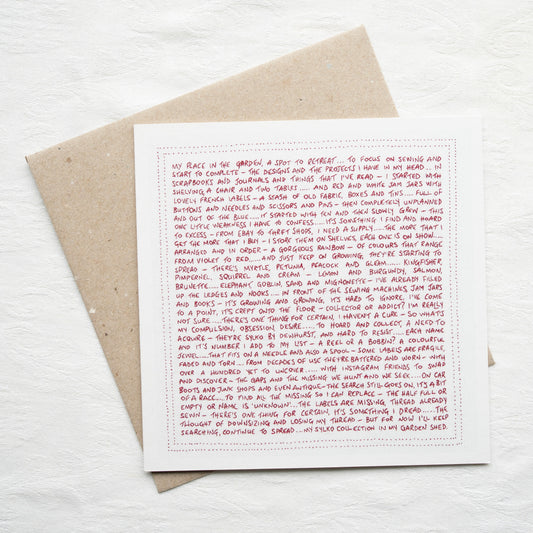 MY PLACE IN THE GARDEN, A SPOT TO RETREAT... TO FOCUS ON SEWING AND
START TO COMPLETE – THE DESIGNS AND THE PROJECTS I HAVE IN MY HEAD... IN
SCRAPBOOKS AND JOURNALS AND THINGS THAT I'VE READ – I STARTED WITH
SHELVING, A CHAIR AND TWO TABLES..... AND RED AND WHITE JAM JARS WITH
LOVELY FRENCH LABELS – A STASH OF OLD FABRIC, BOXES AND TINS.... FULL OF
BUTTONS AND NEEDLES AND SCISSORS AND PINS – THEN COMPLETELY UNPLANNED
AND OUT OF THE BLUE.... IT STARTED WITH TEN AND THEN SLOWLY GREW – THIS
ONE LITTLE WEAKNESS I HAVE TO CONFESS.... IT'S SOMETHING I FIND AND HOARD
TO EXCESS – FROM EBAY TO THRIFT SHOPS, I NEED A SUPPLY.... THE MORE THAT I
GET THE MORE THAT I BUY – I STORE THEM ON SHELVES, EACH ONE IS ON SHOW....
ARRANGED AND IN ORDER – A GORGEOUS RAINBOW – OF COLOURS THAT RANGE
FROM VIOLET TO RED..... AND JUST KEEP ON GROWING, THEY'RE STARTING TO
SPREAD – THERE'S MYRTLE, PETUNIA, PEACOCK AND GLEAM..... KINGFISHER,
PIMPERNEL, SQUIRREL AND CREAM – LEMON AND BURGUNDY, SALMON,
BRUNETTE.... ELEPHANT, GOBLIN, SAND AND MIGNONETTE – I'VE ALREADY FILLED
UP THE LEDGES AND NOOKS.... IN FRONT OF THE SEWING MACHINES, JAM JARS
AND BOOKS – IT'S GROWING AND GROWING, IT'S HARD TO IGNORE, I'VE COME
TO A POINT, IT'S CREPT ONTO THE FLOOR – COLLECTOR OR ADDICT? I'M REALLY
NOT SURE .... THERE'S ONE THING FOR CERTAIN, I HAVEN'T A CURE – SO WHAT'S
MY COMPULSION, OBSESSION, DESIRE..... TO HOARD AND COLLECT, A NEED TO
ACQUIRE – THEY'RE SYLKO BY DEWHURST, AND HARD TO RESIST.... EACH NAME
AND IT'S NUMBER I ADD TO MY LIST – A REEL OR A BOBBIN? A COLOURFUL
JEWEL.... THAT FITS ON A NEEDLE AND ALSO A SPOOL – SOME LABELS ARE FRAGILE,
FADED AND TORN.... FROM DECADES OF USE THEY'RE BATTERED AND WORN – WITH
OVER A HUNDRED YET TO UNCOVER..... WITH INSTAGRAM FRIENDS TO SWAP
AND DISCOVER – THE GAPS AND THE MISSING WE HUNT AND WE SEEK.... ON CAR
BOOTS AND JUNK SHOPS AND EVEN ANTIQUE – THE SEARCH STILL GOES ON, IT'S A BIT
OF A RACE.... TO FIND ALL THE MISSING SO I CAN REPLACE – THE HALF FULL OR
EMPTY OR NAME IS 'UNKNOWN'.... THE LABELS ARE MISSING, THREAD ALREADY
SEWN – THERE'S ONE THING FOR CERTAIN, IT'S SOMETHING I DREAD.....THE
THOUGHT OF DOWNSIZING AND LOSING MY THREAD – BUT FOR NOW I'LL KEEP
SEARCHING, CONTINUE TO SPREAD....MY SYLKO COLLECTION IN MY GARDEN SHED.